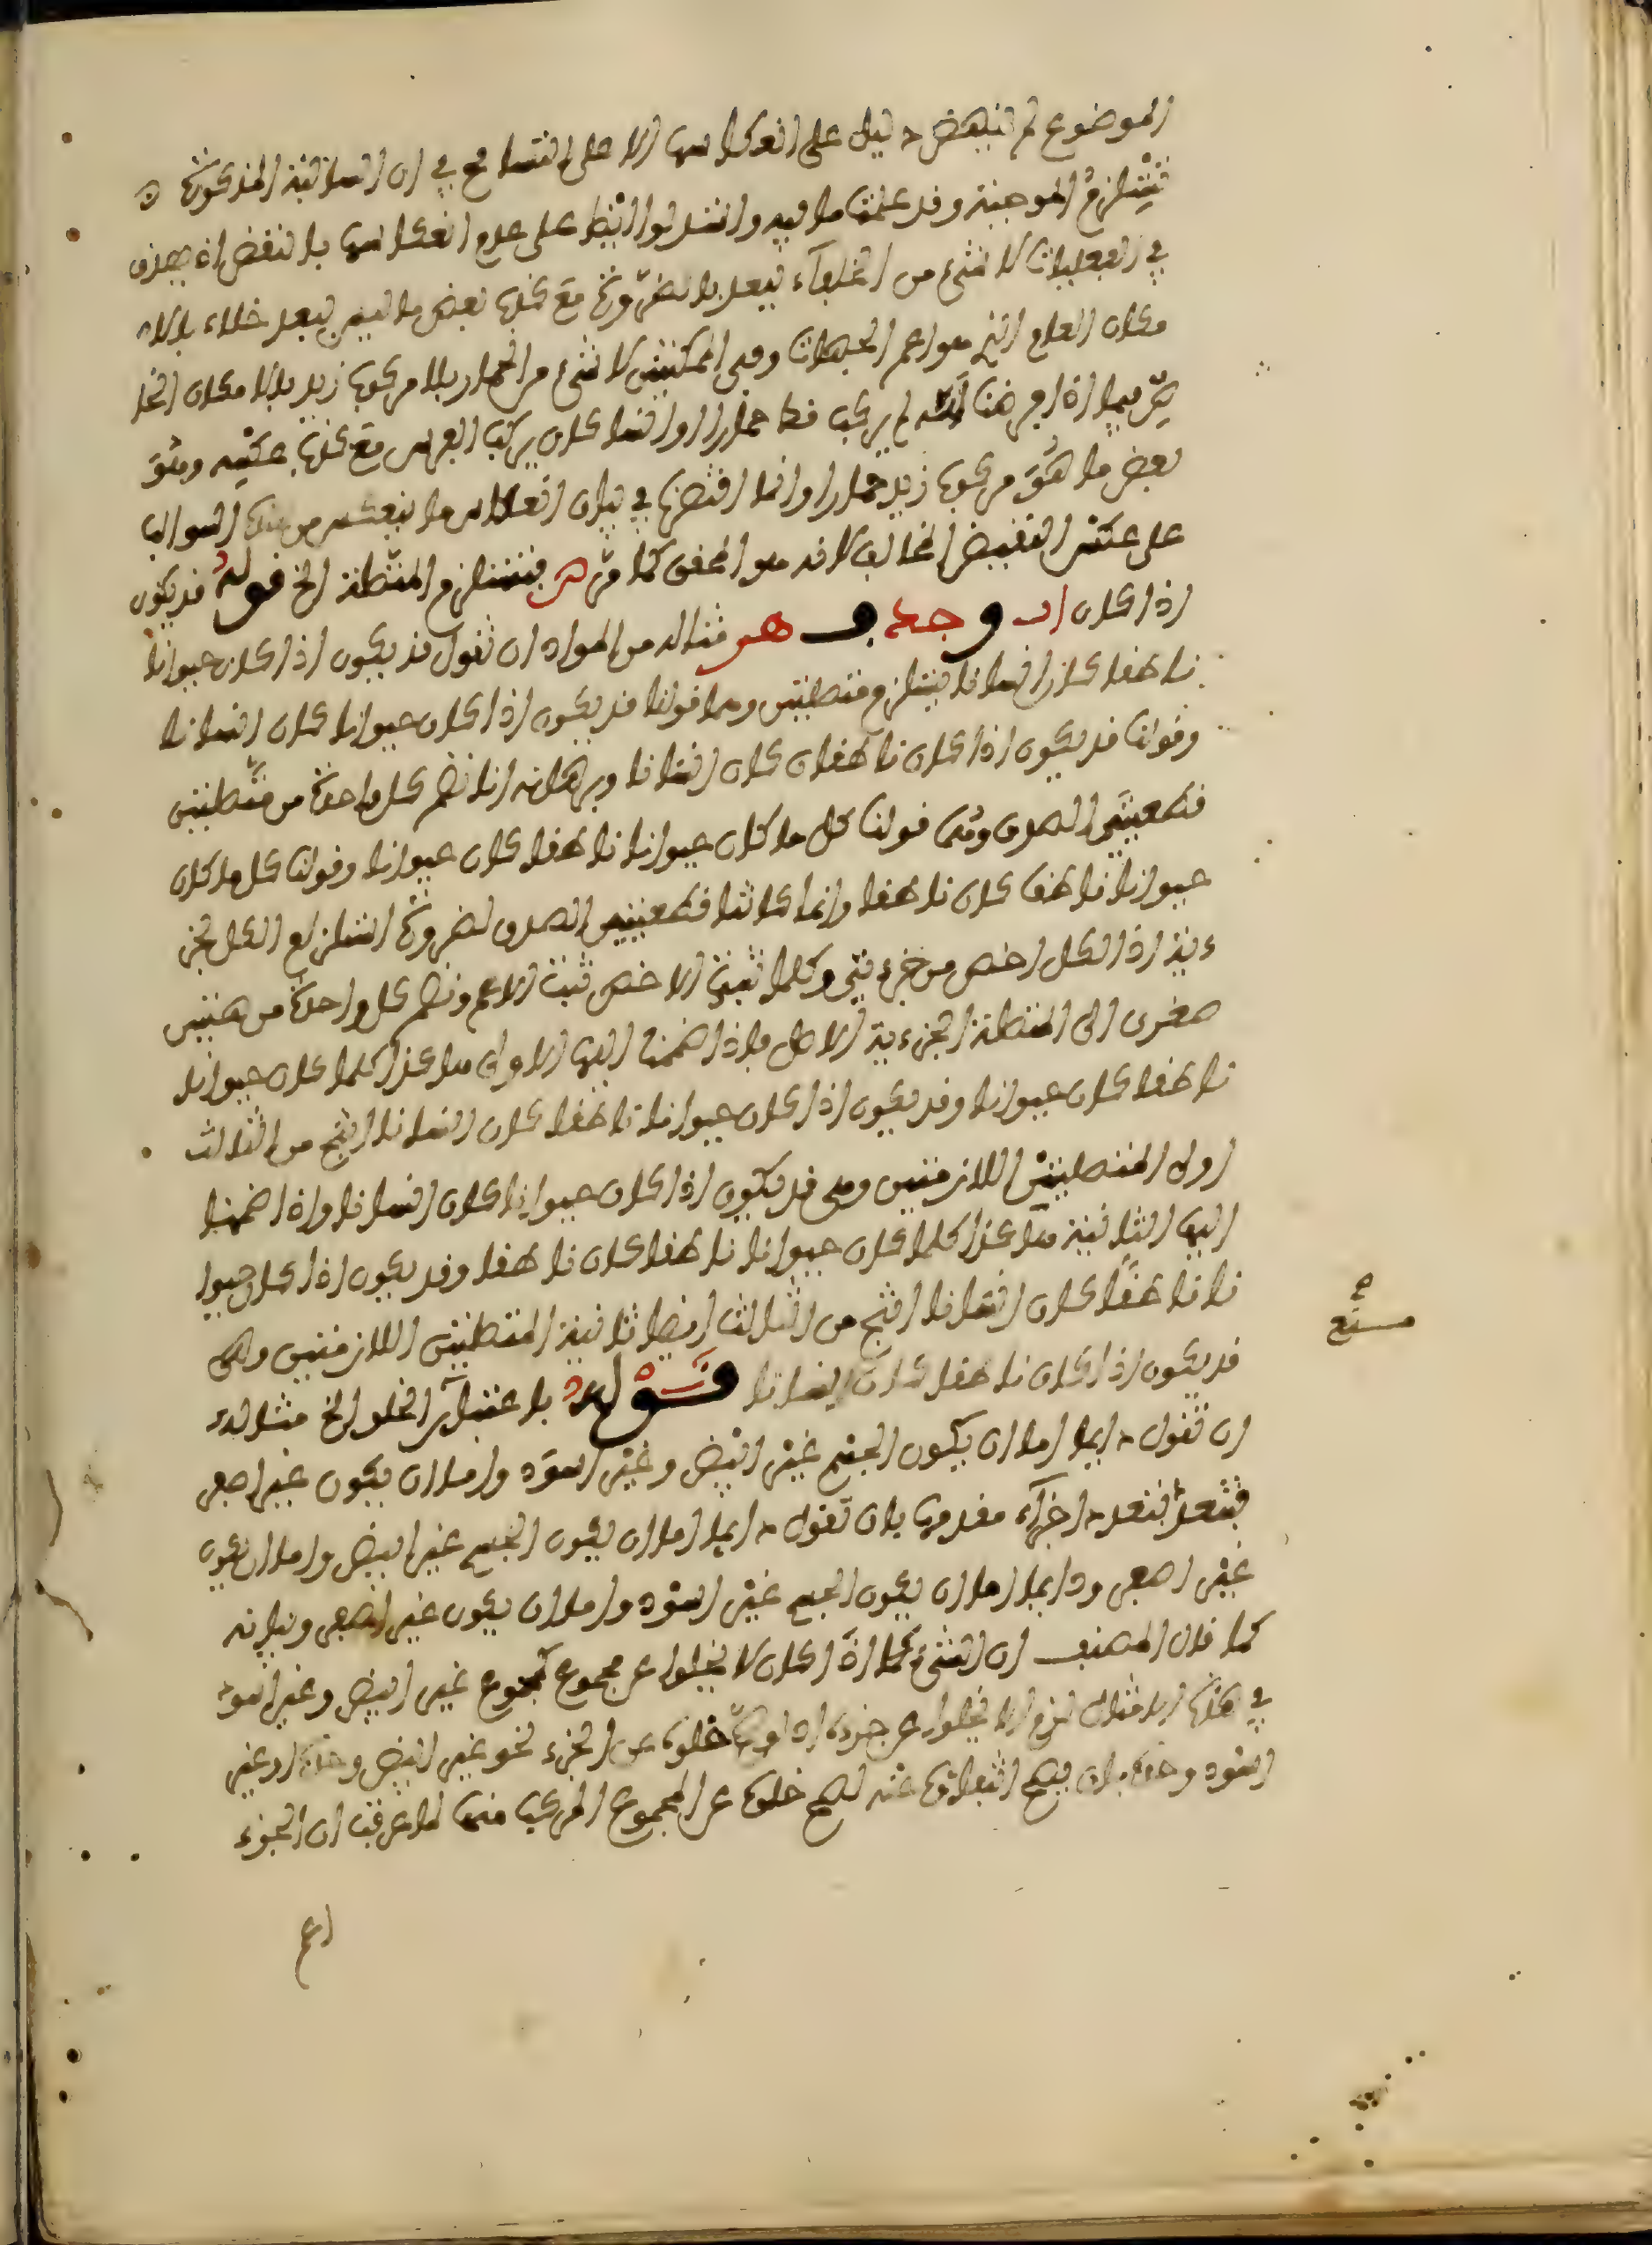 الموضوع لم ينهض دليل على انعكاسها الا على التسامح في ان السالبة المذكورة
تستلزم الموجبة وقد علمت ما فيه واستدلوا ايضا على عدم انعكاسها بالنقض اذ يصدق
في الفعليات لا شيء من الخلاء ببعد بالضرورة مع كذب بعض ما ليس ببعد خلاء بالا
مكان العام الذي هو اعم الجهات وفي الممكنتين لا شيء من الحمار بلا مركوب زيد بالامكان الخا
ص فيما اذا فرضنا انه لم يركب قط حمارا وانما كان يركب الفرس مع كذب عكسه وهو
بعض ما هو مركوب زيد حمارا وانما اقتصرنا في بيان انعكاس ما ينعكس من هذه السوالب
على عكس النقيض المخالف لانه هو المحقق كما مر فتستلزم المتصلة الخ قوله قد يكون
اذا كان ا ب و ج د ف ه مثاله من المواد ان تقول قد يكون اذا كان حيوانا
ناطقا كان انسانا يستلزم متصلتين وهما قولنا قد يكون اذا كان حيوانا كان انسانا
وقولنا قد يكون اذا كان ناطقا كان انسانا وبرهانه انا نضم كل واحدة من متصلتين
قطعيتي الصدق وهما قولنا كل ما كان حيوانا ناطقا كان حيوانا وقولنا كل ما كان
حيوانا ناطقا كان ناطقا وانما كانتا قطعيتي الصدق لضرورة استلزام الكل لجز
ءيه اذ الكل اخص من جزءيه وكلما ثبت الاخص ثبت الاعم ونضم كل واحدة من هتين
صغرى الى المتصلة الجزءية الاصل فاذا ضممنا اليها الاولى هاكذا كلما كان حيوانا
ناطقا كان حيوانا وقد يكون اذا كان حيوانا ناطقا كان انسانا انتج من الثالث
اولى المتصلتين اللازمتين وهي قد يكون اذا كان حيوانا كان انسانا واذا ضممنا
اليها الثانية هاكذا كلما كان حيوانا ناطقا كان ناطقا وقد يكون اذا كان حيوا
نا ناطقا كان انسانا انتج من الثالث ايضا ثانية المتصلتين اللازمتين وهي
قد يكون اذا كان ناطقا كان انسانا قوله باعتبار الخلو الخ مثاله
ان تقول دايما اما ان يكون الجسم غير ابيض وغير اسود واما ان يكون غير اصفر
فتعدد بتعدد اجزاء مقدمها بان تقول دايما اما ان يكون الجسم غير ابيض واما ان يكون
غير اصفر ودايما اما ان يكون الجسم غير اسود واما ان يكون غير اصفر وبيانه
كما قال المصنف ان الشيء اذا كان لا يخلوا عن مجموع كمجموع غير ابيض وغير اسود
في هذا المثال لزم الا يخلوا عن جزءه اذ لو صح خلوه عن الجزء نحو غير ابيض وحده او غير
اسود وحده بان يصح انتفاؤه عنه لصح خلوه عن المجموع المركب منهما لما عرفت ان الجزء
اعم